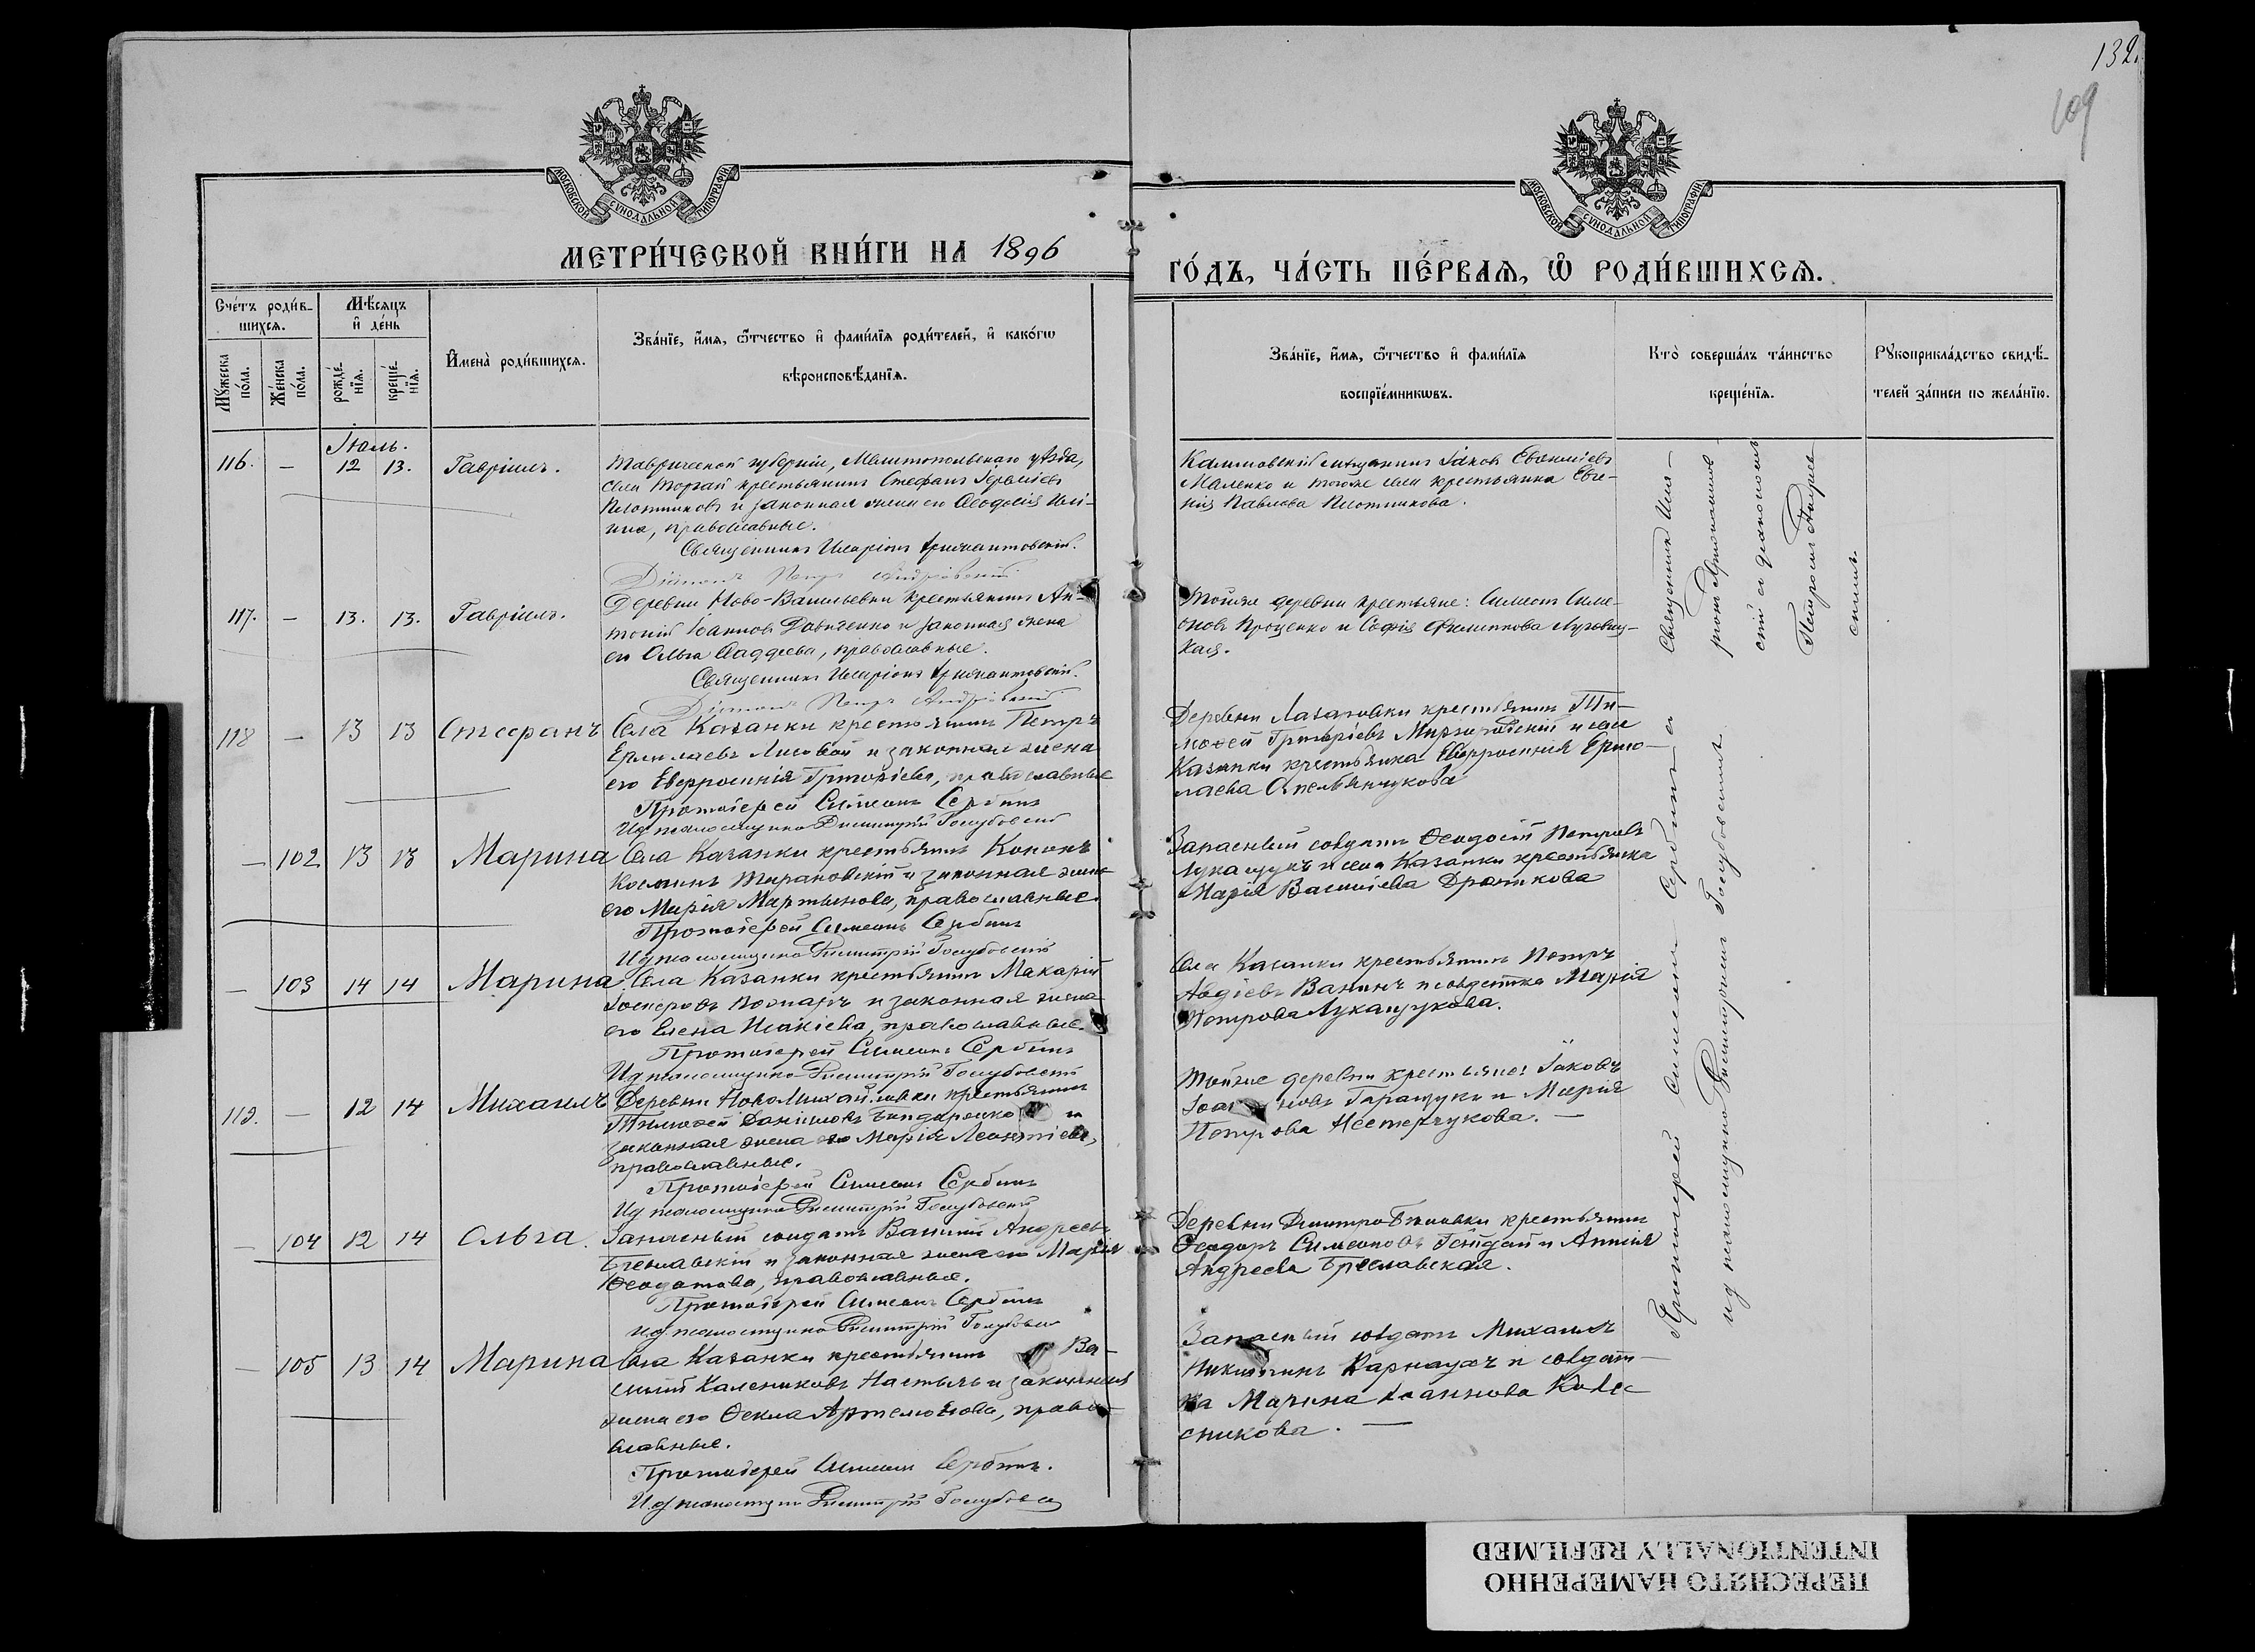 132.
109
МОСКОВСКОЙ СѴНОДАЛЬНОЙ ТИПОГРАФІИ
МОСКОВСКОЙ СѴНОДАЛЬНОЙ ТИПОГРАФІИ
МЕТРИ́ЧЕСКОЙ КНИ́ГИ НА 1896
ГО́ДЪ, ЧА́СТЬ ПЕ́РВАЯ, Ѡ РОДИ́ВШИХСЯ.
Сче́тъ роди́в-
шихся.
Мѣ́сяцъ
и де́нь
Му́жеска по́ла.
Же́нска по́ла.
рожде́-
нїя.
креще́-
нїя.
Имена̀ роди́вшихся.
Зва́нїе, и́мя, ѻ́тчество и фами́лїя роди́телей, и како́гѡ
вѣроисповѣ́данїя.
Зва́нїе, и́мя, ѻ́тчество и фами́лїя
воспрїе́мникѡвъ.
Кто̀ соверша́лъ та́инство
креще́нїя.
Рꙋкоприкла́дство свидѣ́-
телей за́писи по жела́нїю.
Іюль.
116. — 12 13. Гавріилъ.
Таврической губерніи, Мелитопольскаго уѣзда,
села Торгай крестьянинъ Стефанъ
Плотниковъ и законная жена его Ѳеодосія Иль-
ина, православные.
Священникъ Иларіонъ
Діаконъ Петръ
мѣщанинъ Іаковъ
Маленко и того же села крестьянка Евге-
нія Павлова Плотникова.
117. — 13. 13. Гавріилъ.
Деревни Ново-Васильевки крестьянинъ Ан-
тоній Іоанновъ Давиденко и законная жена
его Ольга Ѳаддеева, православные.
Священникъ Иларіонъ
Діаконъ Петръ
Той же деревни крестьяне: Симеонъ Симе-
оновъ Проценко и Софія Филиппова Луговиц-
кая.
118 — 13 13 Стефанъ
Села Казанки крестьянинъ Петръ
Ермолаевъ Лисовой и законная жена
его Евфросинія Григоріева, православные
Протоіерей Симеонъ Сербинъ
И.д псаломщика Димитрій Голубовскій
Деревни Лазаровки крестьянинъ Ти-
моѳей Григоріевъ Миргородскій и села
Казанки крестьянка Евфросинія Ермо-
лаева Омельянчукова
— 102 13 13 Марина
Села Казанки крестьянинъ Кононъ
Косминъ Тарановскій и законная жена
его Марія Мартынова, православные.
Протоіерей Симеонъ Сербинъ
И.д псаломщика Димитрій Голубовскій
Запасный солдатъ Ѳеодосій Петровъ
Лукащукъ и села Казанки крестьянка
Марія Васильева Дротикова
— 103 14 14 Марина
Села Казанки крестьянинъ Макарій
и законная жена
его Елена Исакіева, православные.
Протоіерей Симеонъ Сербинъ
И.д псаломщика Димитрій Голубовскій
Села Казанки крестьянинъ Петръ
Авдіевъ Ванинъ и солдатка Марія
Петрова Лукащукова.
119. — 12 14 Михаилъ
Деревни НовоМихайловки крестьянинъ
Тимоѳей Даніиловъ Бондаренко и
законная жена его Марія Леонтіева,
православные.
Протоіерей Симеонъ Сербинъ
И.д псаломщика Димитрій Голубовскій
Той же деревни крестьяне: Іаковъ
Іоанновъ Таращукъ и Марія
Петрова Нестерчукова. —
— 104 12 14 Ольга.
Запасный солдатъ Василій Андреевъ
Бреславскій и законная жена его Марія
Ѳеодотова, православные.
Протоіерей Симеонъ Сербинъ
И.д. псаломщика Димитрій Голубовскій
Деревни ДмитроБѣловки крестьянинъ
Ѳеодоръ Симеоновъ Гейдай и Аннія
Андреева Бреславская.
— 105 13 14 Марина
Села Казанки крестьянинъ Ва-
силій Колениковъ и законная
жена его Ѳекла Артемонова, право-
славные.
Протоіерей Симеонъ Сербинъ.
И.д. псаломщика Димитрій Голубовскій
Запасный солдатъ Михаилъ
Никитинъ Карнаухъ и солдат-
ка Марина Іоаннова Колес-
никова. —
Священникъ Ила-
ріонъ
скій съ діакономъ
Петромъ Андріев-
скимъ.
Протоіерей Симеонъ Сербинъ съ
и.д псаломщика Димитріемъ Голубовскимъ
ПЕРЕСНЯТО НАМЕРЕННО
INTENTIONALLY REFILMED